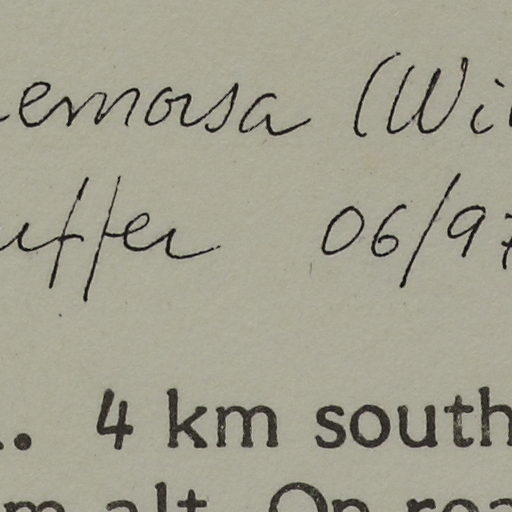 emosa (Wi
uffer 06/97
. 4 km south
m alt. On roa